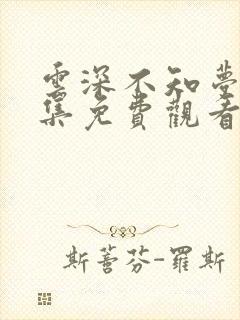 雲深不知夢
集免費觀看
斯蕾芬-羅斯